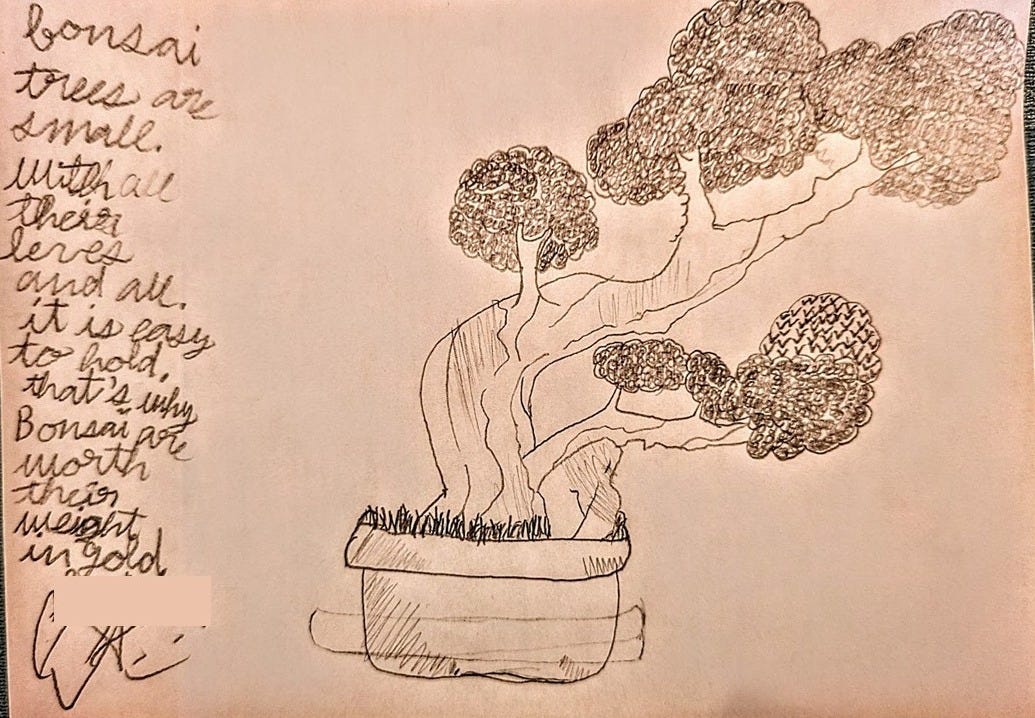 bonsai
trees are
small.
with all
their
leves
and all.
it is easy
to hold.
that's why
Bonsai are
worth
their
weight
in gold